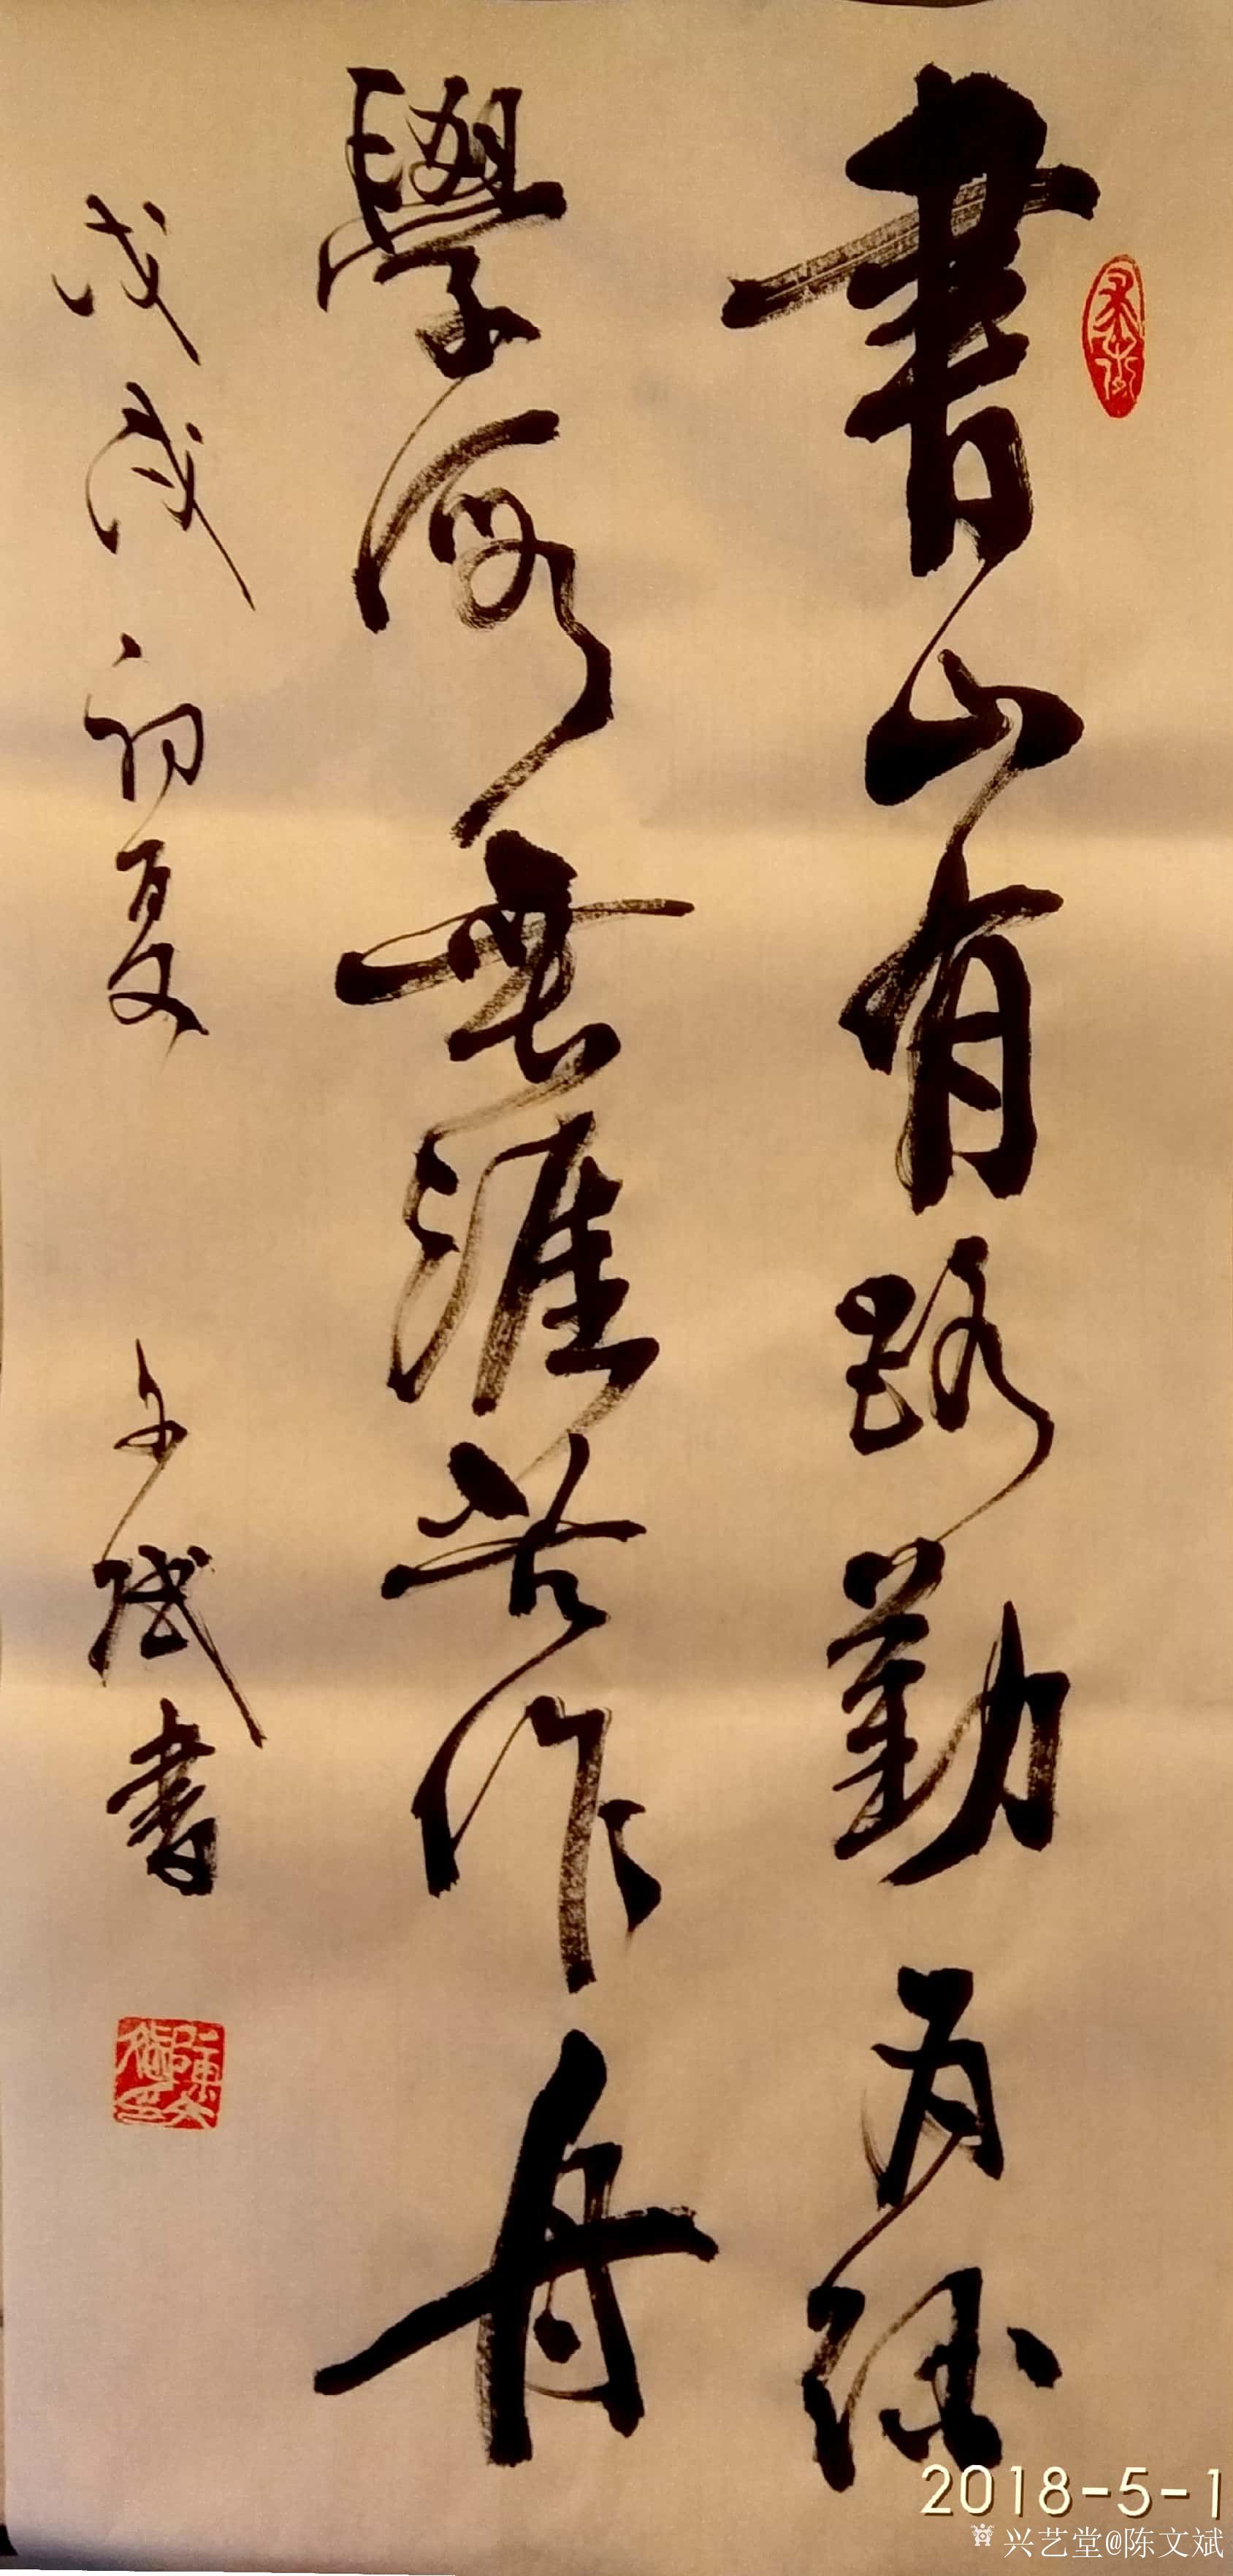 書山有路勤為徑
學海無涯苦作舟
戊戌初夏
文斌書
陳文斌印
2018-5-1
兴艺堂@陈文斌